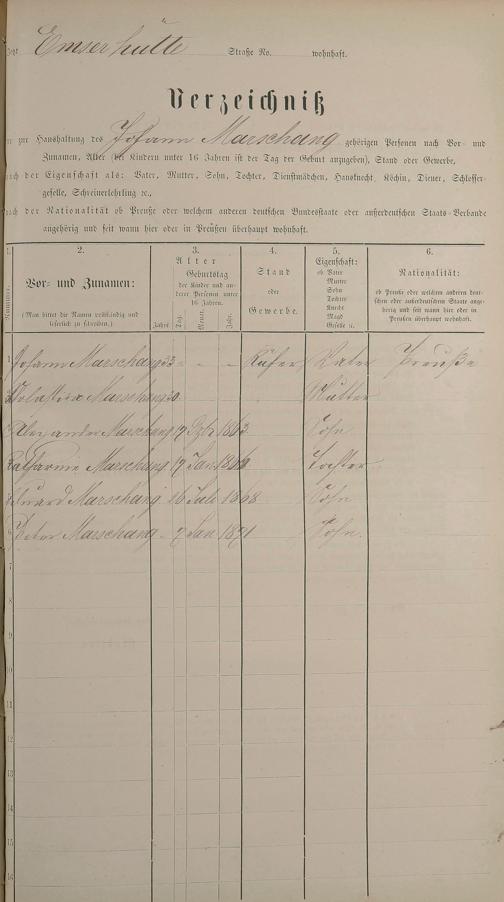 Emserhütte Straße No. wohnhaft.
Verzeichniß
zur Haushaltung des Johann Marschang gehörigen Personen nach Vor- und
Zunamen, Alter (bei Kindern unter 16 Jahren ist der Tag der Geburt anzugeben), Stand oder Gewerbe,
nach der Eigenschaft als: Vater, Mutter, Sohn, Tochter, Dienstmädchen, Hausknecht, Köchin, Diener, Schlosser-
geselle, Schreinerlehrling ꝛc.,
nach der Nationalität ob Preuße oder welchem anderen deutschen Bundesstaate oder außerdeutschen Staats-Verbande
angehörig und seit wann hier oder in Preußen überhaupt wohnhaft.
1. 2. 3. 4. 5. 6.
Nummer.
Vor- und Zunamen:
(Man bittet die Namen vollständig und
leserlich zu schreiben.)
Alter
Geburtstag
der Kinder und an-
derer Personen unter
16 Jahren.
Jahre Tag. Monat. Jahr.
Stand
oder
Gewerbe.
Eigenschaft:
ob Vater
Mutter
Sohn
Tochter
Knecht
Magd
Geselle ꝛc.
Nationalität:
ob Preuße oder welchem anderen deut-
schen oder außerdeutschen Staate ange-
hörig und seit wann hier oder in
Preußen überhaupt wohnhaft.
1 Johann Marschang 33 - - - Küfer Vater Preuße
Marschang 30 Mutter
Alexander Marschang 17 Dzbr 1863 Sohn
Catharine Marschang 17 Jan 1866 Tochter
Eduard Marschang 16 Juli 1868 Sohn
Peter Marschang - 7 Jan 1871 Sohn
7
8
9
10
11
12
13
14
15
16